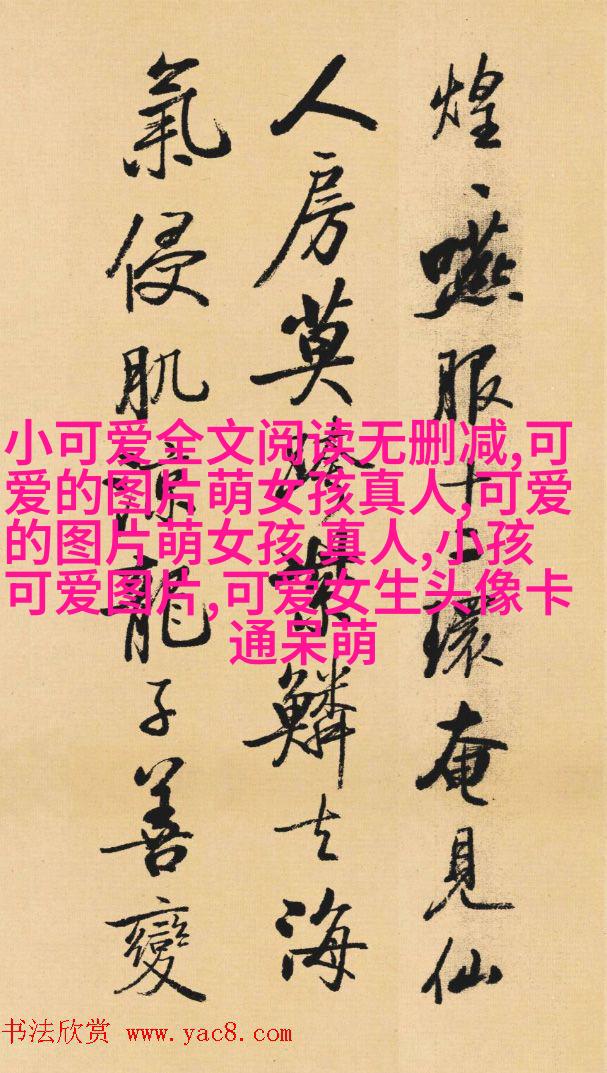 煌、嚥服十二環奄見仙
人房莫跨紫鱗去海
氣侵肌涼龍子善變
小可爱全文阅读无删减,可
爱的图片萌女孩真人,可爱
的图片萌女孩 真人,小孩
可爱图片,可爱女生头像卡
通呆萌
书法欣赏 www.yac8.com